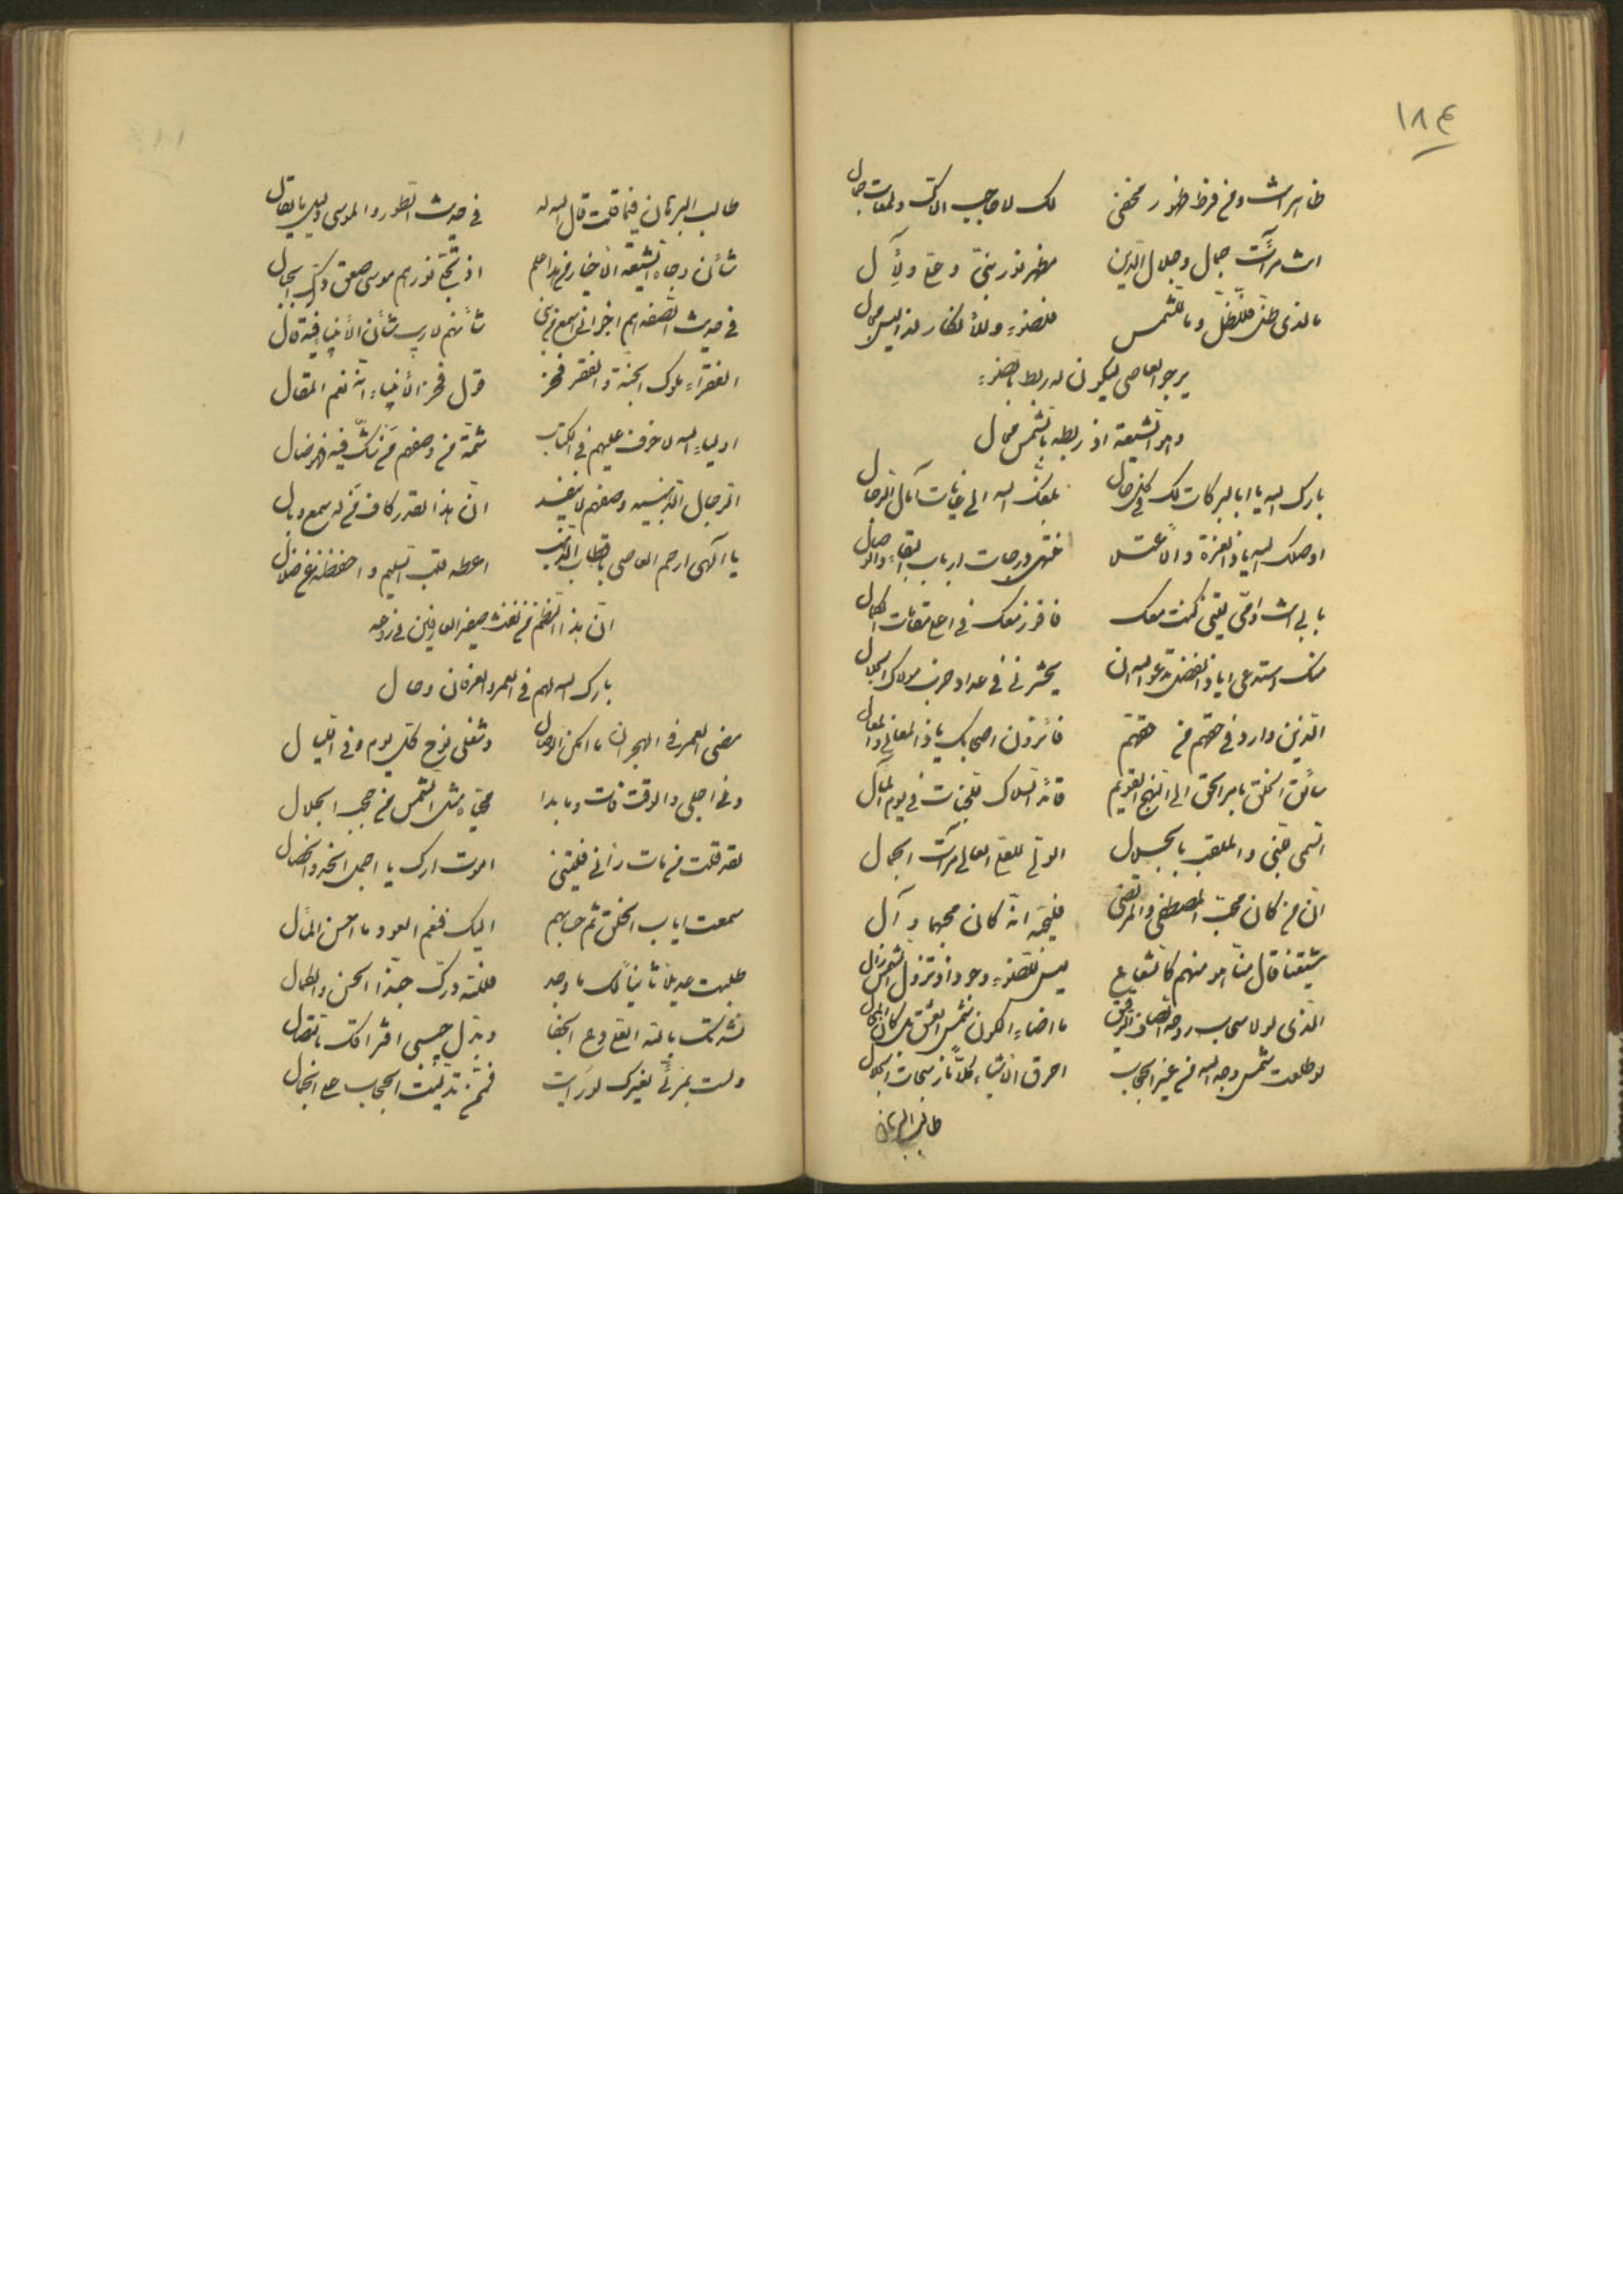 ١٨٤
ظاهر انت ومن فرط ظهور مخفی لك لا حاجب الاك ولمعات جمال
انت مرآت جمال وجلال الدین مظهر نور نبی وعلی ولآل
ما لذی ظل فللظل وما للشمس فللضوء وللأنكار لذا لیس مجال
یرجو العاصی لیكون له ربط بالضوء
وهو الشیعة اذ ربطه بالشمس محال
بارك الله یا ابا البركات لك فی كل حال بلغك الله الی غایات آمال الرجال
اوصلك الله یا ذا العزة والاعتلا منتهی درجات ارباب البقاء والوصال
بابی انت وامی لیتنی كنت معك فافوز معك فی اعلی مقامات الكمال
منك استدعی ایا ذا الفضل تدعو الله ان یحشرنی فی عداد حزب مولاك الجلال
الذین وارد فی حقهم من حقهم فائزون اصحابك یا ذا المعالی والمعال
سائق الخلق بامر الحق الی النهج القویم قائد السلاك للجنات فی یوم المآل
السمی والملقب بالجلال الولی للعلی العالی مرآت الجمال
ان من كان محب المصطفی والمرتضی فلیحبه انه كان محبهما وآل
شیعتنا قال منا هو منهم كالشعاع لیس للضوء وجود اذ تزول الشمس زال
الذی لولا سحاب روحه الصاف الرقیق ما اضاء الكون شمس العشق بل كان المحال
لو طلعت شمس وجه الله من غیر الحجاب احرق الاشیاء كلا نار سبحات الجلال
طالب البرهان
طالب البرهان فیما قلت قال الله له فی حدیث الطور والموسی ولیس ما یقال
شأن وجاه الشیعة الاخیار من هذا علم اذ تجلی نورهم موسی صعق ودك الجبال
فی حدیث الصفه هم اخوانی اسمع من نبی شأنهم لا ریب شأن الأنبیا فیه قال
الفقراء ملوك الجنة والفقر فخر قول فخر الأنبیاء انه نعم المقال
اولیاء الله لا خوف علیهم فی الكتاب ثمة من وصفهم من شك فیه فهو ضال
الرجال وصفهم لا ینفد ان هذا القدر كاف من له سمع وبال
یا آلهی ارحم العاصی باقطاب الذین اعطه قلب السلیم واحفظنه عن ضلال
ان هذا النظم من نفث صفیر العارفین فی روحه
بارك الله لهم فی العمر والعرفان وحال
مضی العمر فی الهجران ما امكن الوصال وشغلی نوح كل یوم وفی اللیال
دنی اجلی والوقت فات وما بدا محیاه مثل الشمس من حجب الجلال
لقد قلت من مات رآنی فلیتنی اموت ارك یا اجمل الخد والخصال
سمعت ایاب الخلق ثم حسابهم الیك فنعم العود ما احسن المآل
طلبت عدیلا ثانیا لك ما وجد فلله درك حبذا الحسن والكمال
نشدتك بالله اقلع ودع الجفا وبدل حبیبی افتراقك بالتصال
ولست بمرئی بغیرك لو رایت فثم تدلیت الحجاب علی الجمال